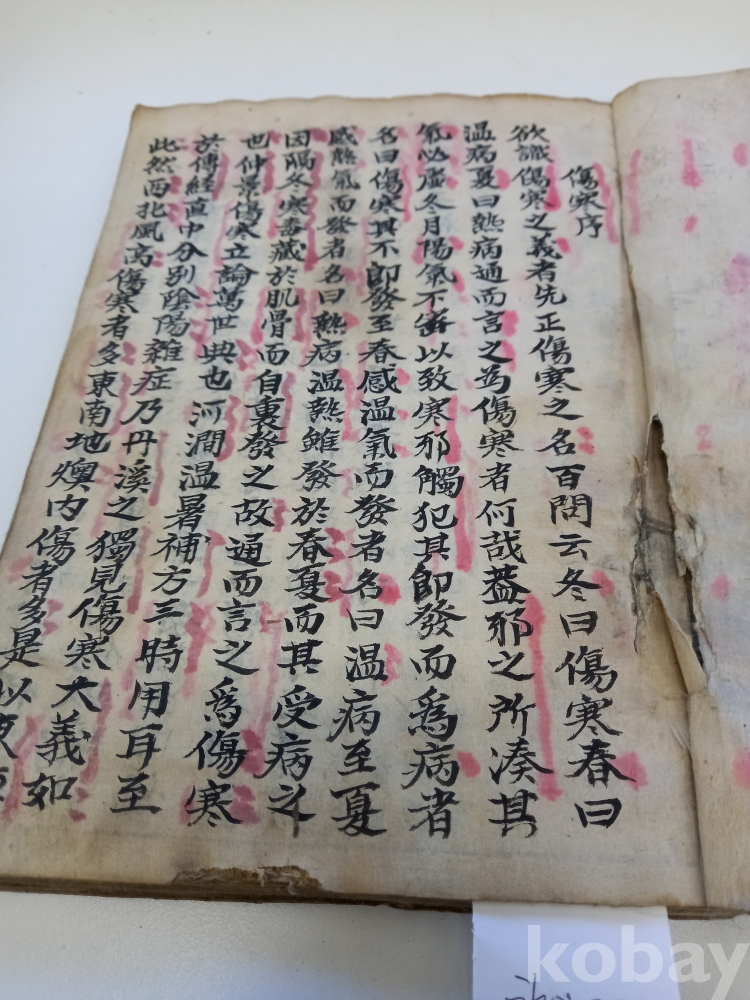 傷寒序
欲識傷寒之義者先正傷寒之名百問云冬曰傷寒春曰
温病夏曰熱病通而言之為傷寒者何哉蓋邪之所湊其
氣必虛冬月陽氣不密以致寒邪觸犯其即發而為病者
名曰傷寒其不即發至春感温氣而發者名曰温病至夏
感熱氣而發者名曰熱病温熱雖發於春夏而其受病之
因隔冬寒毒藏於肌骨而自裏發之故通而言之為傷寒
也仲景傷寒立論萬世典也河澗温暑補方三時用耳至
於傳經直中分別陰陽雜症乃丹溪之獨見傷寒大義如
此然西北風高傷寒者多東南地燠内傷者多是以
kobay